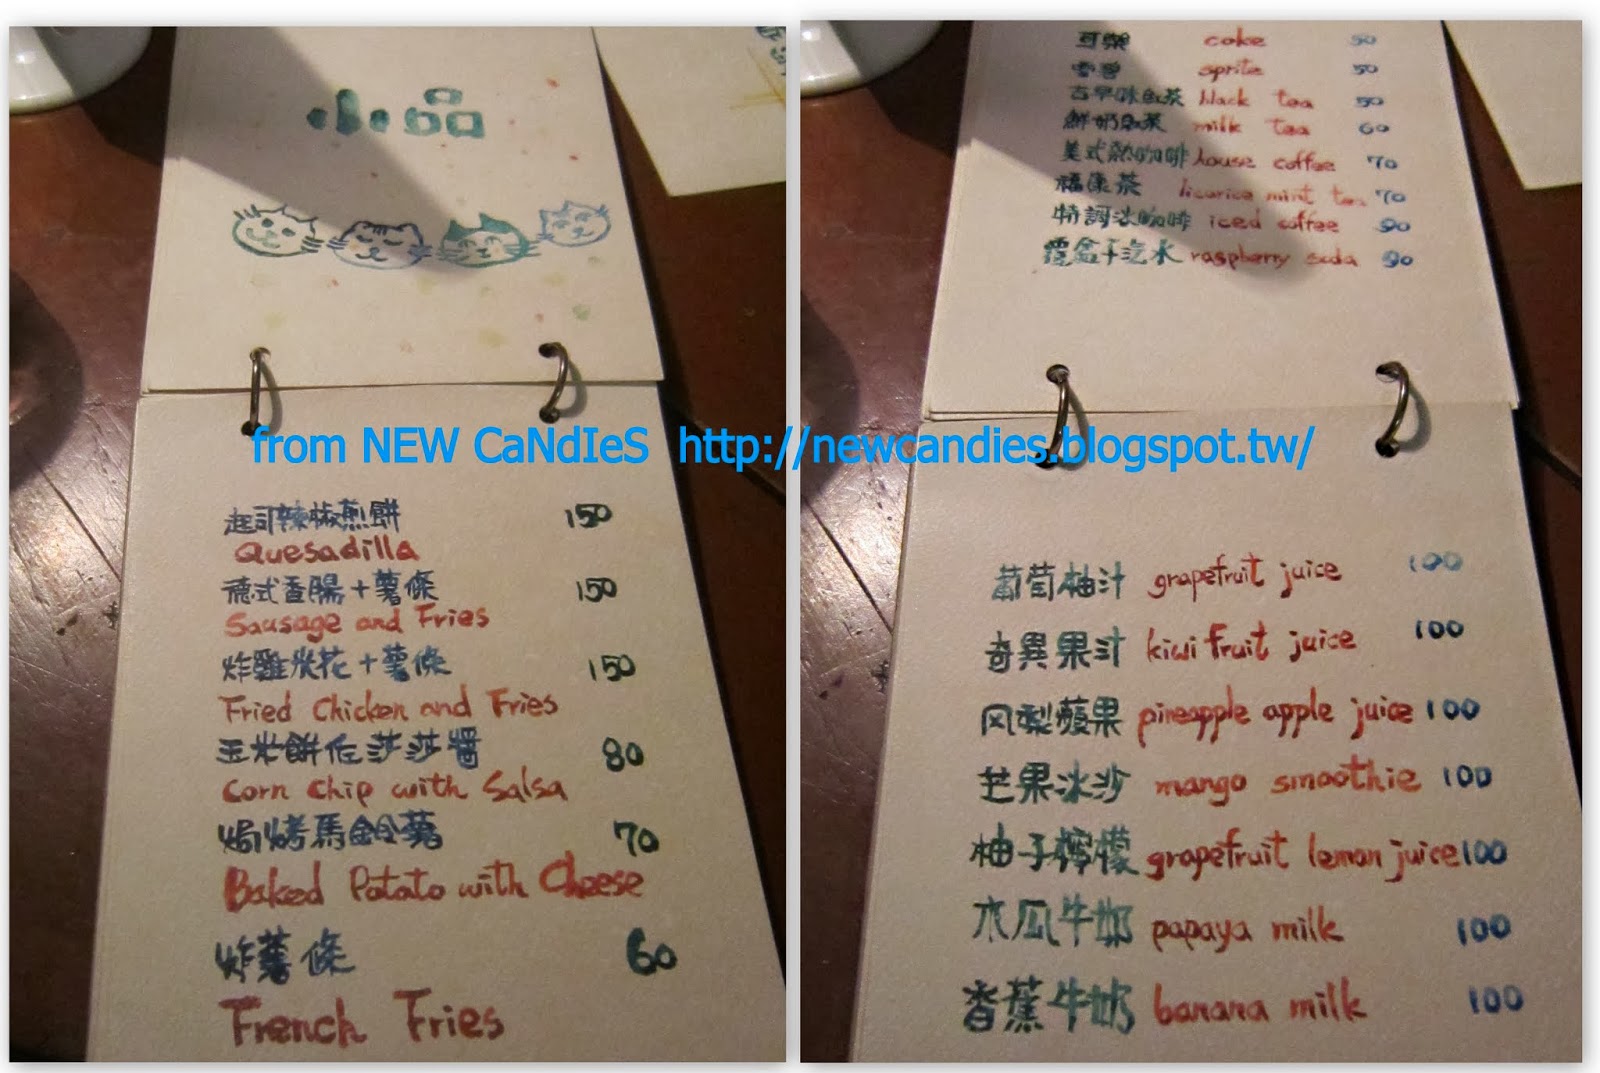 小品
from NEW CaNdIeS http://newcandies.blogspot.tw/
起司辣椒煎餅 150
Quesadilla
德式香腸+薯條 150
Sausage and Fries
炸雞米花+薯條 150
Fried Chicken and Fries
玉米餅佐莎莎醬 80
Corn Chip with Salsa
焗烤馬鈴薯 70
Baked Potato with Cheese
炸薯條 60
French Fries
可樂 coke 50
雪碧 sprite 50
古早味紅茶 black tea 50
鮮奶紅茶 milk tea 60
美式熱咖啡 house coffee 70
福康茶 licorice mint tea 70
特調冰咖啡 iced coffee 90
覆盆子汽水 raspberry soda 90
葡萄柚汁 grapefruit juice 100
奇異果汁 kiwi fruit juice 100
凤梨蘋果 pineapple apple juice 100
芒果冰沙 mango smoothie 100
柚子檸檬 grapefruit lemon juice 100
木瓜牛奶 papaya milk 100
香蕉牛奶 banana milk 100